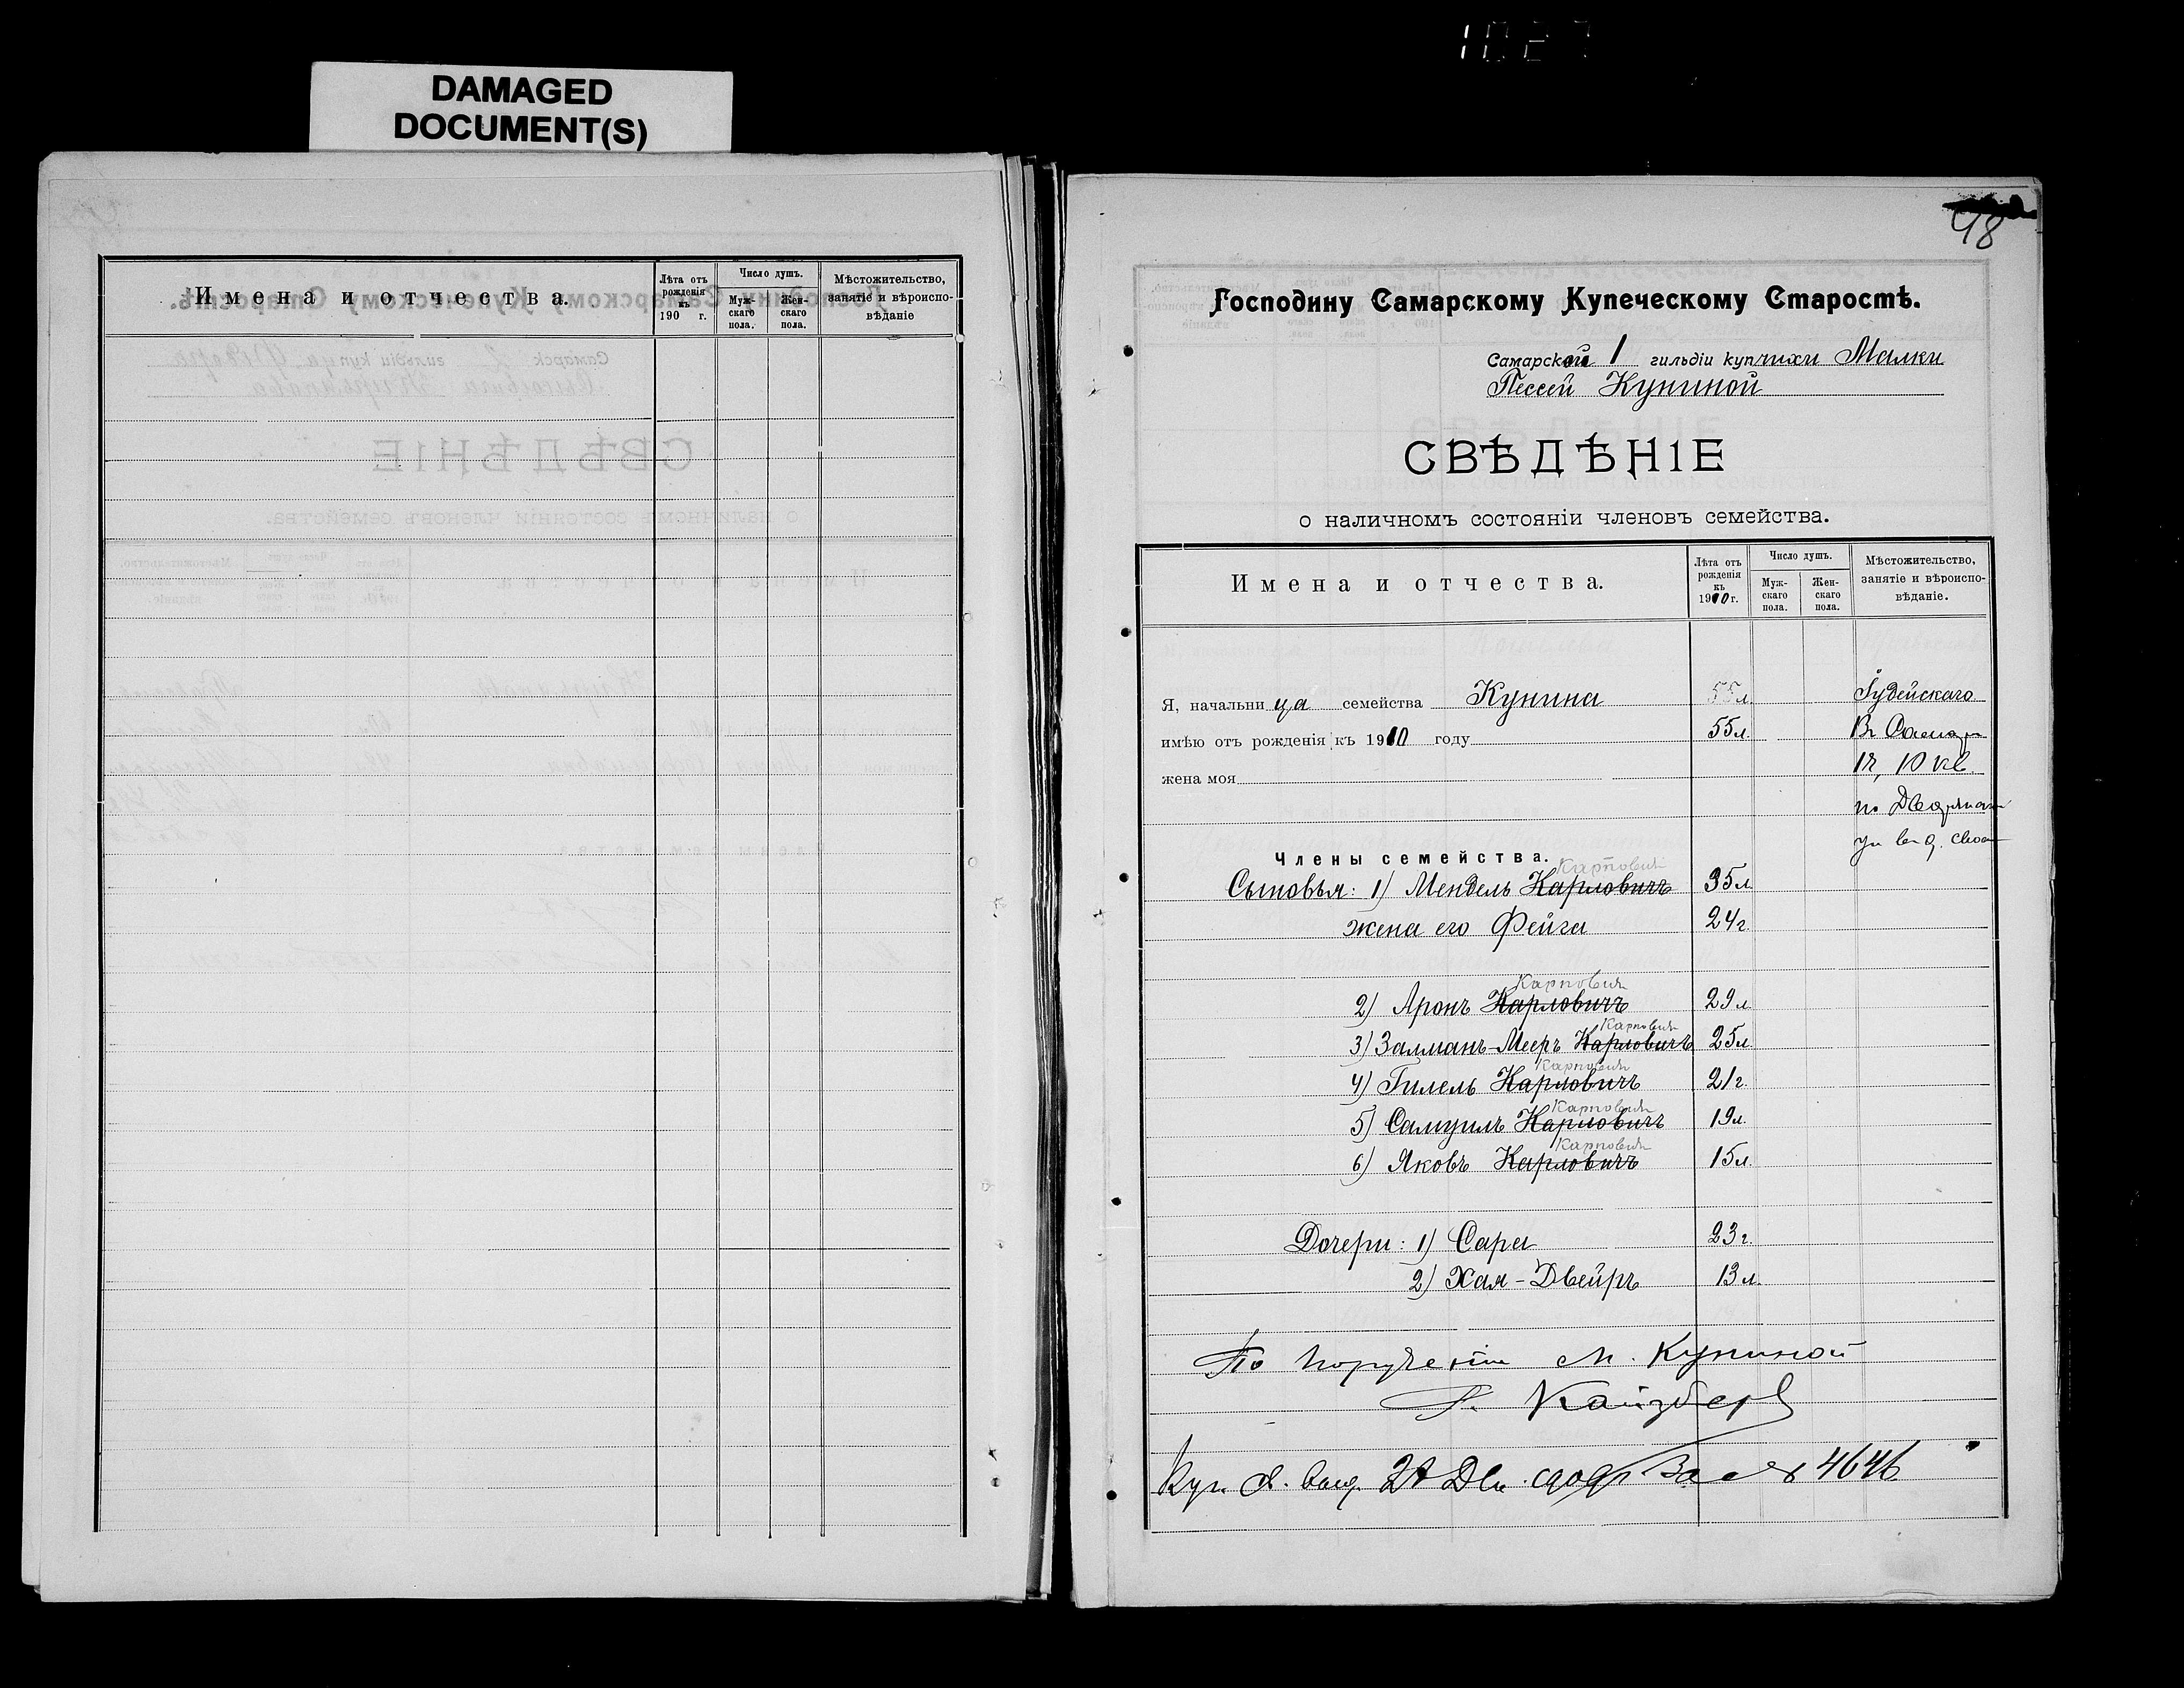 1027
DAMAGED
DOCUMENT(S)
Имена и отчества.
Лѣта отъ рожденія къ 190 г.
Число душъ.
Мужскаго пола.
Женскаго пола.
Мѣстожительство, занятіе и вѣроисповѣданіе
98
Господину Самарскому Купеческому Старостѣ.
Самарской 1 гильдіи купчихи Малки
Пессей Куниной
СВѢДѢНІЕ
о наличномъ состояніи членовъ семейства.
Имена и отчества.
Лѣта отъ рожденія къ 1910 г.
Число душъ.
Мужскаго пола.
Женскаго пола.
Мѣстожительство, занятіе и вѣроисповѣданіе.
Я, начальница семейства Кунина 55 л. Іудейскаго
имѣю отъ рожденія къ 1910 году 55 л. Въ
жена моя 1 ч, 10 кв.
по
ул въ д.
Члены семейства.
Карповичъ
Сыновья: 1) Мендель Карловичъ 35 л
жена его Фейга 24 г.
Карповичъ
2) Аронъ Карловичъ 29 л
Карповичъ
3) Залманъ-Мееръ Карловичъ 25 л
Карповичъ
4) Гилель Карловичъ 21 г.
Карповичъ
5) Самуилъ Карловичъ 19 л.
Карповичъ
6) Яковъ Карловичъ 15 л.
Дочери: 1) Сара 23 г.
2) Хая-Двейръ 13 л.
По порученію М. Куниной
Куп. 4646